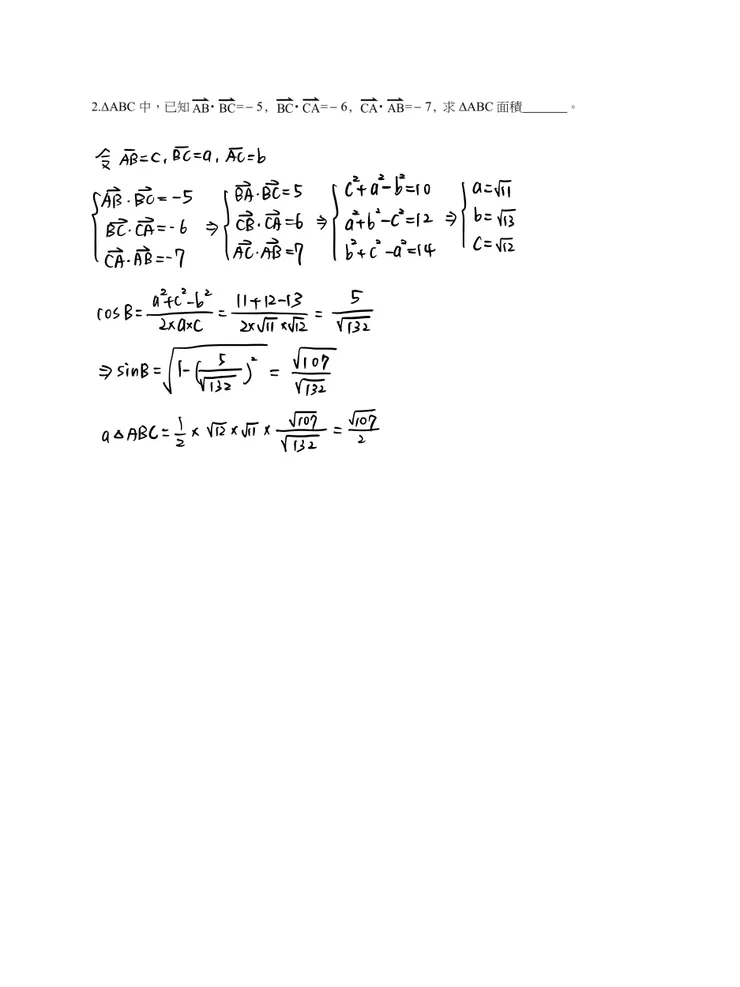 2.ΔABC 中，已知 $\overrightarrow{AB}$‧$\overrightarrow{BC}$=−5, $\overrightarrow{BC}$‧$\overrightarrow{CA}$=−6, $\overrightarrow{CA}$‧$\overrightarrow{AB}$=−7, 求 ΔABC 面積_______。
令 $\overline{AB}=c, \overline{BC}=a, \overline{AC}=b$
$\begin{cases}\overrightarrow{AB}\cdot\overrightarrow{BC}=-5\\ \overrightarrow{BC}\cdot\overrightarrow{CA}=-6\\ \overrightarrow{CA}\cdot\overrightarrow{AB}=-7\end{cases}\Rightarrow\begin{cases}\overrightarrow{BA}\cdot\overrightarrow{BC}=5\\ \overrightarrow{CB}\cdot\overrightarrow{CA}=6\\ \overrightarrow{AC}\cdot\overrightarrow{AB}=7\end{cases}\Rightarrow\begin{cases}c^2+a^2-b^2=10\\ a^2+b^2-c^2=12\\ b^2+c^2-a^2=14\end{cases}\Rightarrow\begin{cases}a=\sqrt{11}\\ b=\sqrt{13}\\ c=\sqrt{12}\end{cases}$
$\cos B=\frac{a^2+c^2-b^2}{2\times a\times c}=\frac{11+12-13}{2\times\sqrt{11}\times\sqrt{12}}=\frac{5}{\sqrt{132}}$
$\Rightarrow \sin B=\sqrt{1-(\frac{5}{\sqrt{132}})^2}=\frac{\sqrt{107}}{\sqrt{132}}$
$a\triangle ABC=\frac{1}{2}\times\sqrt{12}\times\sqrt{11}\times\frac{\sqrt{107}}{\sqrt{132}}=\frac{\sqrt{107}}{2}$